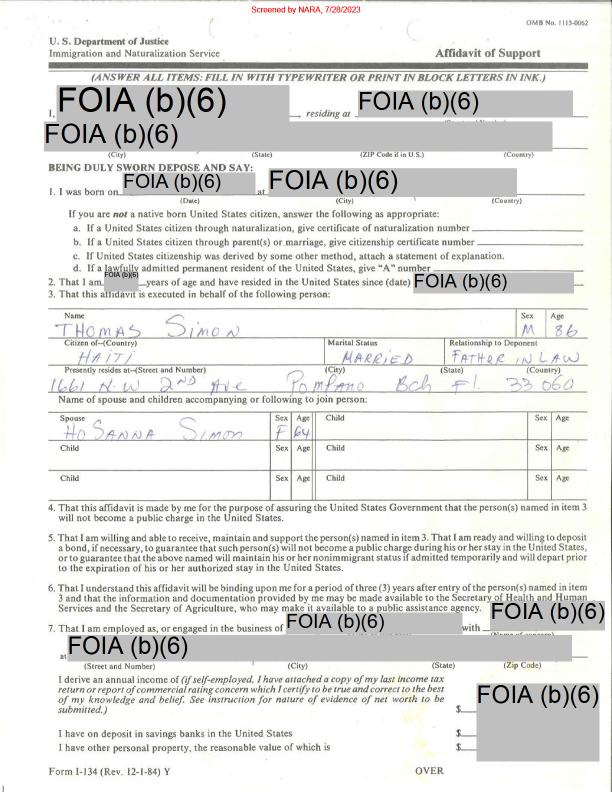 Screened by NARA, 7/28/2023
OMB No. 1115-0062
U. S. Department of Justice
Immigration and Naturalization Service Affidavit of Support
(ANSWER ALL ITEMS: FILL IN WITH TYPEWRITER OR PRINT IN BLOCK LETTERS IN INK.)
I, FOIA (b)(6) , residing at FOIA (b)(6)
FOIA (b)(6)
(City) (State) (ZIP Code if in U.S.) (Country)
BEING DULY SWORN DEPOSE AND SAY:
1. I was born on FOIA (b)(6) at FOIA (b)(6)
(Date) (City) (Country)
If you are not a native born United States citizen, answer the following as appropriate:
a. If a United States citizen through naturalization, give certificate of naturalization number
b. If a United States citizen through parent(s) or marriage, give citizenship certificate number
c. If United States citizenship was derived by some other method, attach a statement of explanation.
d. If a lawfully admitted permanent resident of the United States, give "A" number
2. That I am FOIA (b)(6) years of age and have resided in the United States since (date) FOIA (b)(6)
3. That this affidavit is executed in behalf of the following person:
Name Sex Age
THOMAS SIMON M 86
Citizen of—(Country) Marital Status Relationship to Deponent
HAITI MARRIED FATHER IN LAW
Presently resides at—(Street and Number) (City) (State) (Country)
1661 N.W 2ND AVE POMPANO Bch Fl. 33060
Name of spouse and children accompanying or following to join person:
Spouse Sex Age Child Sex Age
HOSANNA SIMON F 64
Child Sex Age Child Sex Age
Child Sex Age Child Sex Age
4. That this affidavit is made by me for the purpose of assuring the United States Government that the person(s) named in item 3
will not become a public charge in the United States.
5. That I am willing and able to receive, maintain and support the person(s) named in item 3. That I am ready and willing to deposit
a bond, if necessary, to guarantee that such person(s) will not become a public charge during his or her stay in the United States,
or to guarantee that the above named will maintain his or her nonimmigrant status if admitted temporarily and will depart prior
to the expiration of his or her authorized stay in the United States.
6. That I understand this affidavit will be binding upon me for a period of three (3) years after entry of the person(s) named in item
3 and that the information and documentation provided by me may be made available to the Secretary of Health and Human
Services and the Secretary of Agriculture, who may make it available to a public assistance agency.
7. That I am employed as, or engaged in the business of FOIA (b)(6) with FOIA (b)(6)
at FOIA (b)(6)
(Street and Number) (City) (State) (Zip Code)
I derive an annual income of (if self-employed, I have attached a copy of my last income tax
return or report of commercial rating concern which I certify to be true and correct to the best
of my knowledge and belief. See instruction for nature of evidence of net worth to be
submitted.) $ FOIA (b)(6)
I have on deposit in savings banks in the United States $
I have other personal property, the reasonable value of which is $
Form I-134 (Rev. 12-1-84) Y OVER